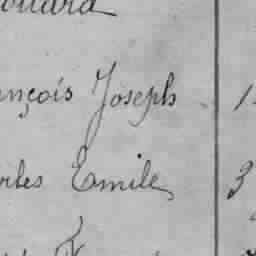 ouard
ançois Joseph 1
rles Emile 3